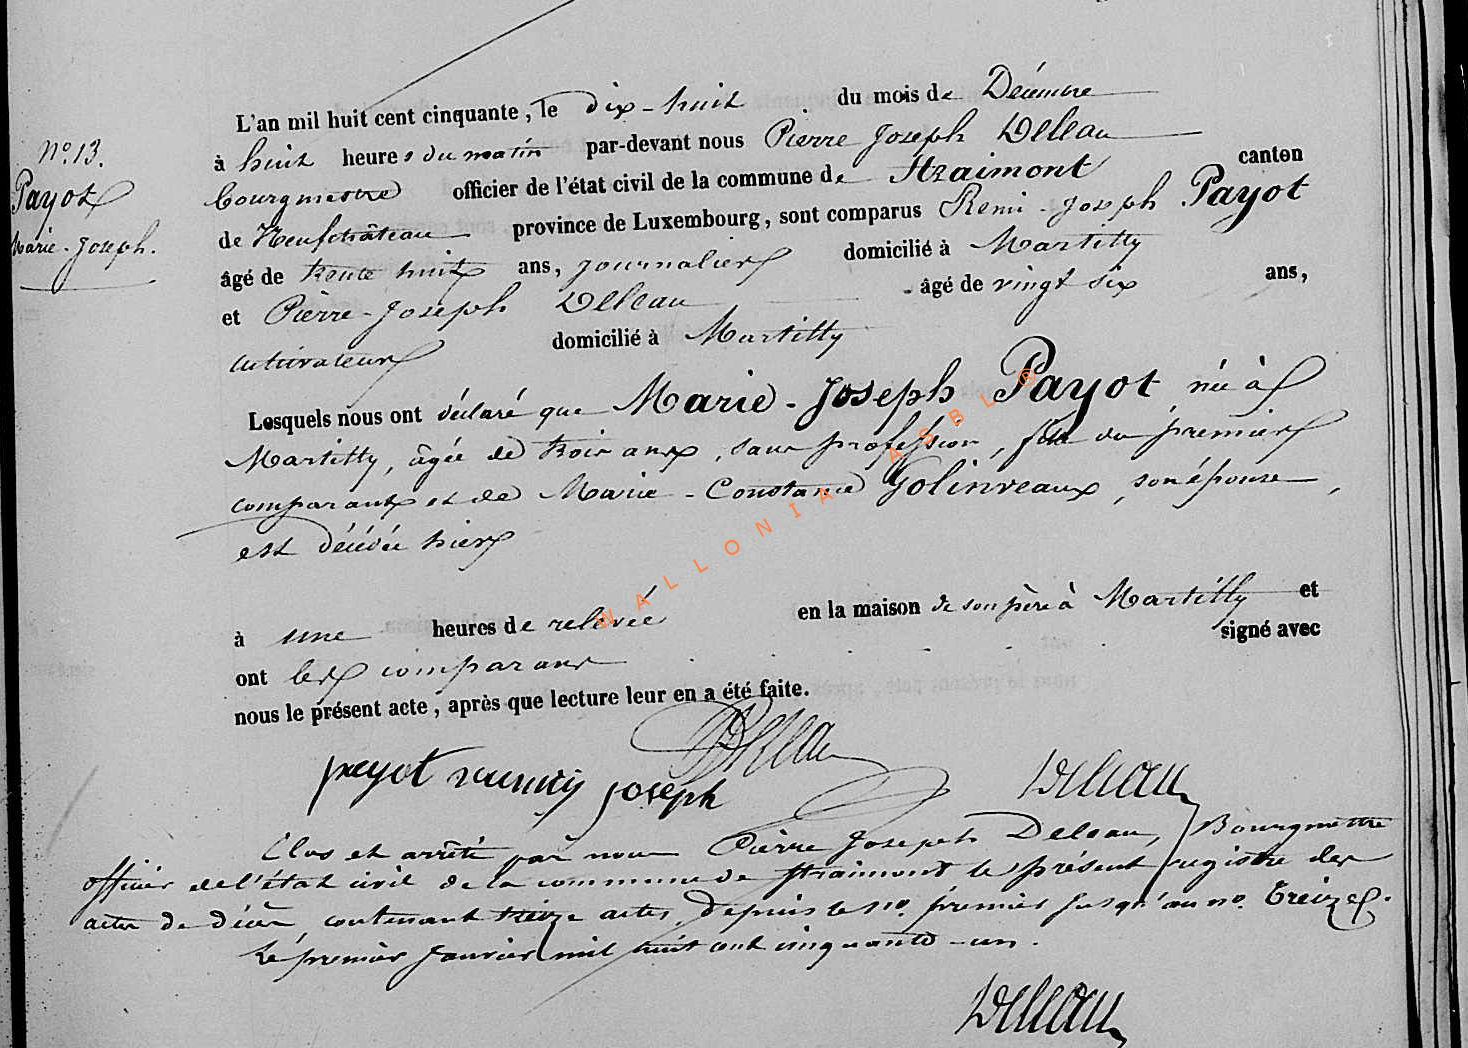 L'an mil huit cent cinquante, le dix-huit du mois de Décembre
N.º 13.
à huit heures du matin par-devant nous Pierre Joseph Delleau
Payot
bourgmestre officier de l'état civil de la commune de Straimont canton
Marie-Joseph.
de Neufchâteau province de Luxembourg, sont comparus Remi-Joseph Payot
âgé de trente huit ans, journalier domicilié à Martilly
et Pierre-Joseph Delleau âgé de vingt six ans,
cultivateur domicilié à Martilly
Lesquels nous ont déclaré que Marie-Joseph Payot née à
Martilly, âgée de trois ans, sans profession, fille du premier
comparant et de Marie-Constance Golinveaux, son épouse,
est décédée hier
à une heures de relevée en la maison de son père à Martilly et
ont les comparans signé avec
nous le présent acte, après que lecture leur en a été faite.
WALLONIA ASBL ®
Delleau
payot joseph
Delleau
Clos et arrêté par nous Pierre Joseph Delleau, Bourgmestre
officier de l'état civil de la commune de Straimont le présent registre des
actes de décès, contenant treize actes, depuis le n.º premier jusqu'au n.º treize.
Le premier Janvier mil huit cent cinquante-un.
Delleau